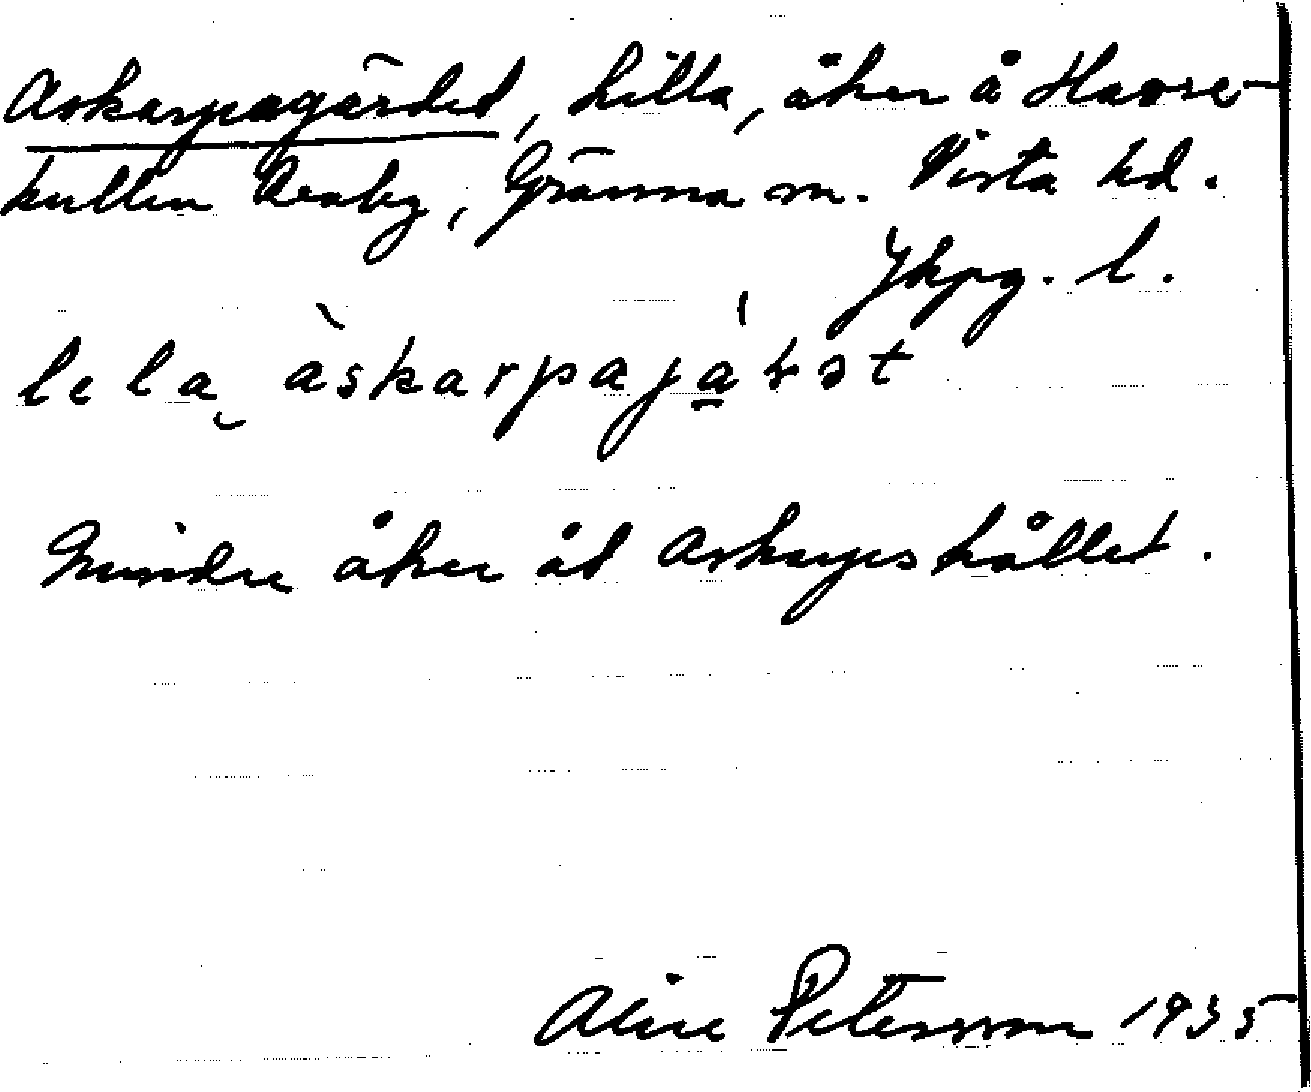 Askarpagärdet, Lilla, åker å Havre-
kullen Uraby, Gränna sn. Vista hd.
Jkpg. l.
lela àskarpajátət
Mindre åker åt Askarpshållet.
Alice Petersson 1935